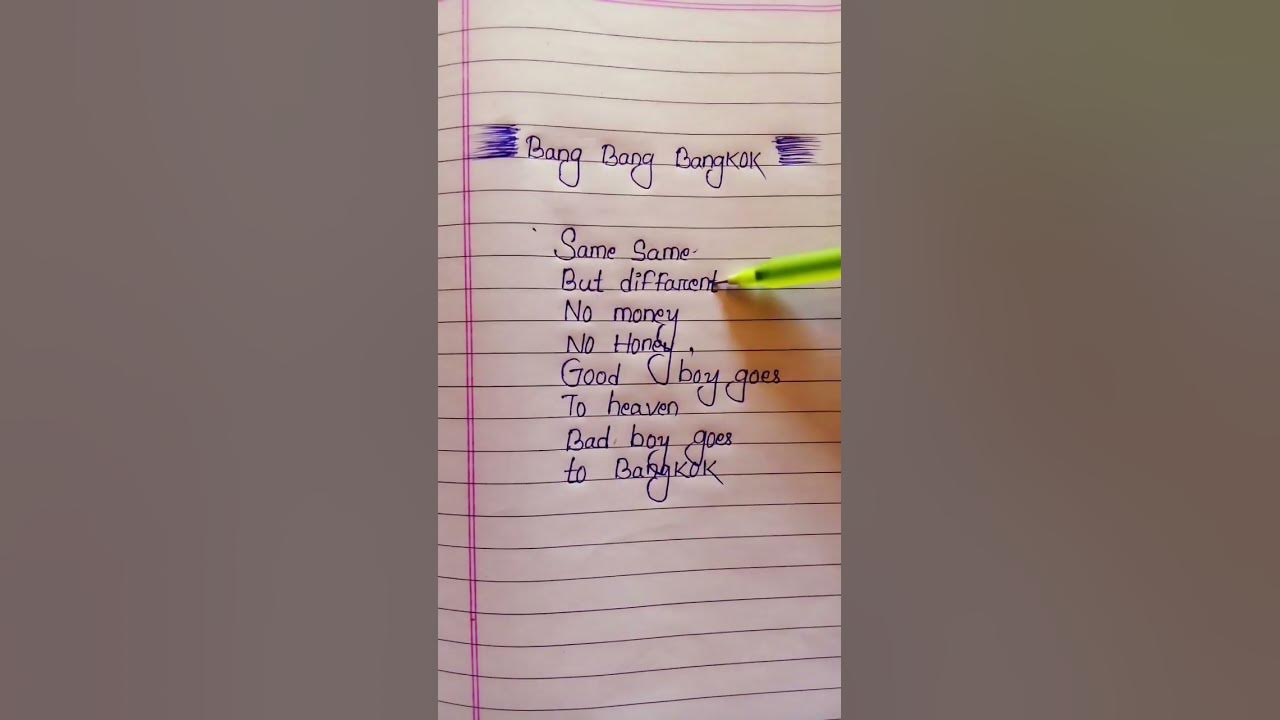 Bang Bang BangKOK
Same Same
But diffarent
No money
No Honey.
Good boy goes
To heaven
Bad boy goes
to BangKOK